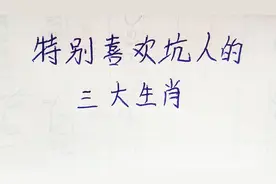 特别喜欢坑人的
三大生肖